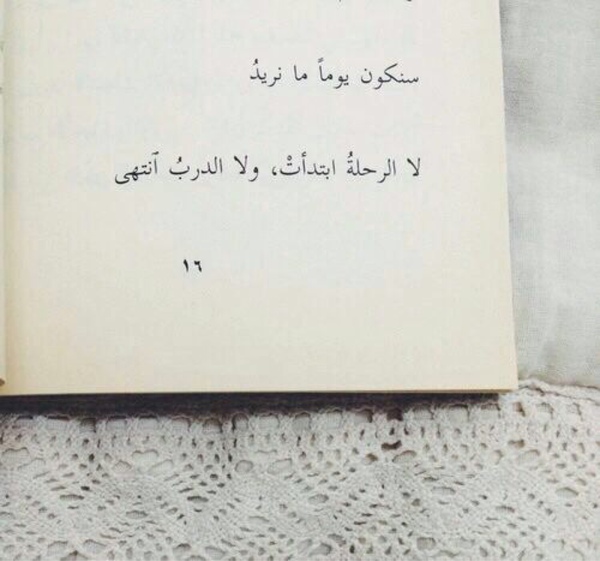 سنكون يوماً ما نريدُ
لا الرحلةُ ابتدأتْ، ولا الدربُ ٱنتهى
١٦